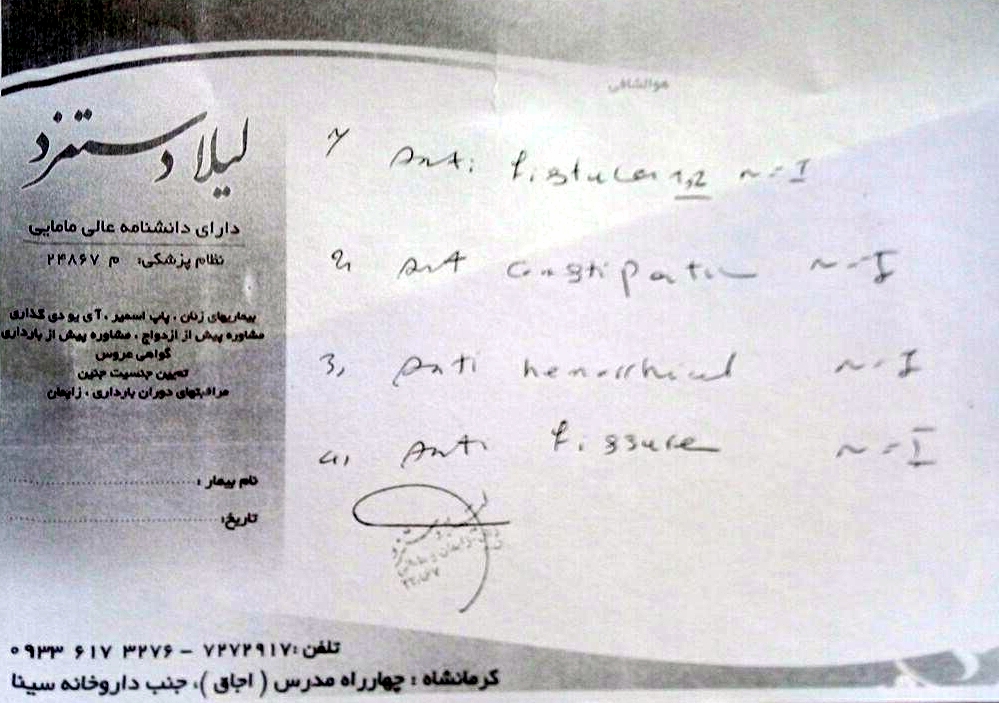 هوالشافی
لیلا دستمزد
دارای دانشنامه عالی مامایی
نظام پزشکی: م ۲۴۸۶۷
بیماریهای زنان ، پاپ اسمیر ، آی یو دی گذاری
مشاوره پیش از ازدواج ، مشاوره پیش از بارداری
گواهی عروس
تعیین جنسیت جنین
مراقبتهای دوران بارداری ، زایمان
نام بیمار :
تاریخ:
Anti fistula 1,2 N=I
2, Ant constipation N=I
3, Anti hemorrhoid N=I
4, Anti fissure N=I
تلفن: ۷۲۷۲۹۱۷ - ۰۹۳۳ ۶۱۷ ۳۲۷۶
کرمانشاه : چهارراه مدرس ( اجاق )، جنب داروخانه سینا